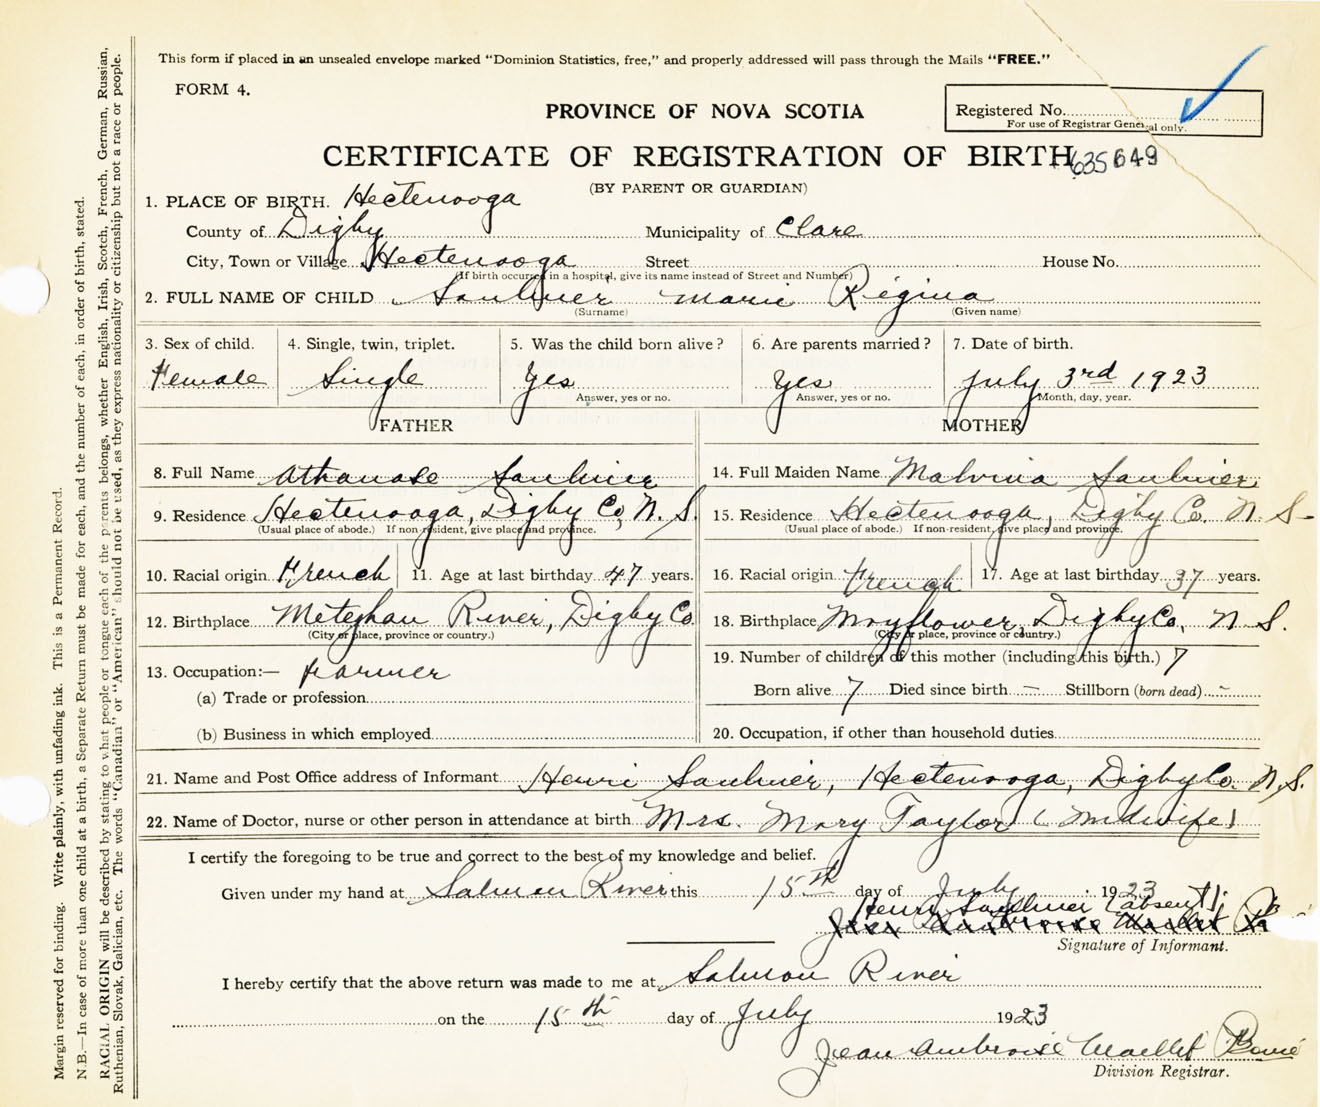 This form if placed in an unsealed envelope marked "Dominion Statistics, free," and properly addressed will pass through the Mails "FREE."
FORM 4.
PROVINCE OF NOVA SCOTIA
Registered No.
For use of Registrar General only.
CERTIFICATE OF REGISTRATION OF BIRTH
635649
(BY PARENT OR GUARDIAN)
1. PLACE OF BIRTH. Hectenooga
County of Digby Municipality of Clare
City, Town or Village Hectenooga Street House No.
(If birth occurred in a hospital, give its name instead of Street and Number)
2. FULL NAME OF CHILD Saulnier Marie Régina
(Surname) (Given name)
3. Sex of child. 4. Single, twin, triplet. 5. Was the child born alive? 6. Are parents married? 7. Date of birth.
Female Single Yes Yes July 3rd 1923
Answer, yes or no. Answer, yes or no. Month, day, year.
FATHER MOTHER
8. Full Name Athanase Saulnier 14. Full Maiden Name Malvina Saulnier
9. Residence Hectenooga, Digby Co, N. S. 15. Residence Hectenooga, Digby Co. N. S.
(Usual place of abode.) If non-resident, give place and province. (Usual place of abode.) If non-resident, give place and province.
10. Racial origin French 11. Age at last birthday 47 years. 16. Racial origin French 17. Age at last birthday 37 years.
12. Birthplace Meteghan River, Digby Co. 18. Birthplace Mayflower, Digby Co, N. S.
(City or place, province or country.) (City or place, province or country.)
13. Occupation:— Farmer 19. Number of children of this mother (including this birth.) 7
(a) Trade or profession Born alive 7 Died since birth — Stillborn (born dead) -
(b) Business in which employed 20. Occupation, if other than household duties
21. Name and Post Office address of Informant Henri Saulnier, Hectenooga, Digby Co. N. S.
22. Name of Doctor, nurse or other person in attendance at birth Mrs. Mary Taylor (Midwife)
I certify the foregoing to be true and correct to the best of my knowledge and belief.
Given under my hand at Salmon River this 15th day of July 1923
Henri Saulnier (absent)
Jean Ambroise Maillet
Signature of Informant.
I hereby certify that the above return was made to me at Salmon River
on the 15th day of July 1923
Jean Ambroise Maillet
Division Registrar.
Margin reserved for binding. Write plainly, with unfading ink. This is a Permanent Record.
N.B.—In case of more than one child at a birth, a Separate Return must be made for each, and the number of each, in order of birth, stated.
RACIAL ORIGIN will be described by stating to what people or tongue each of the parents belongs, whether English, Irish, Scotch, French, German, Russian,
Ruthenian, Slovak, Galician, etc. The words "Canadian" or "American" should not be used, as they express nationality or citizenship but not a race or people.